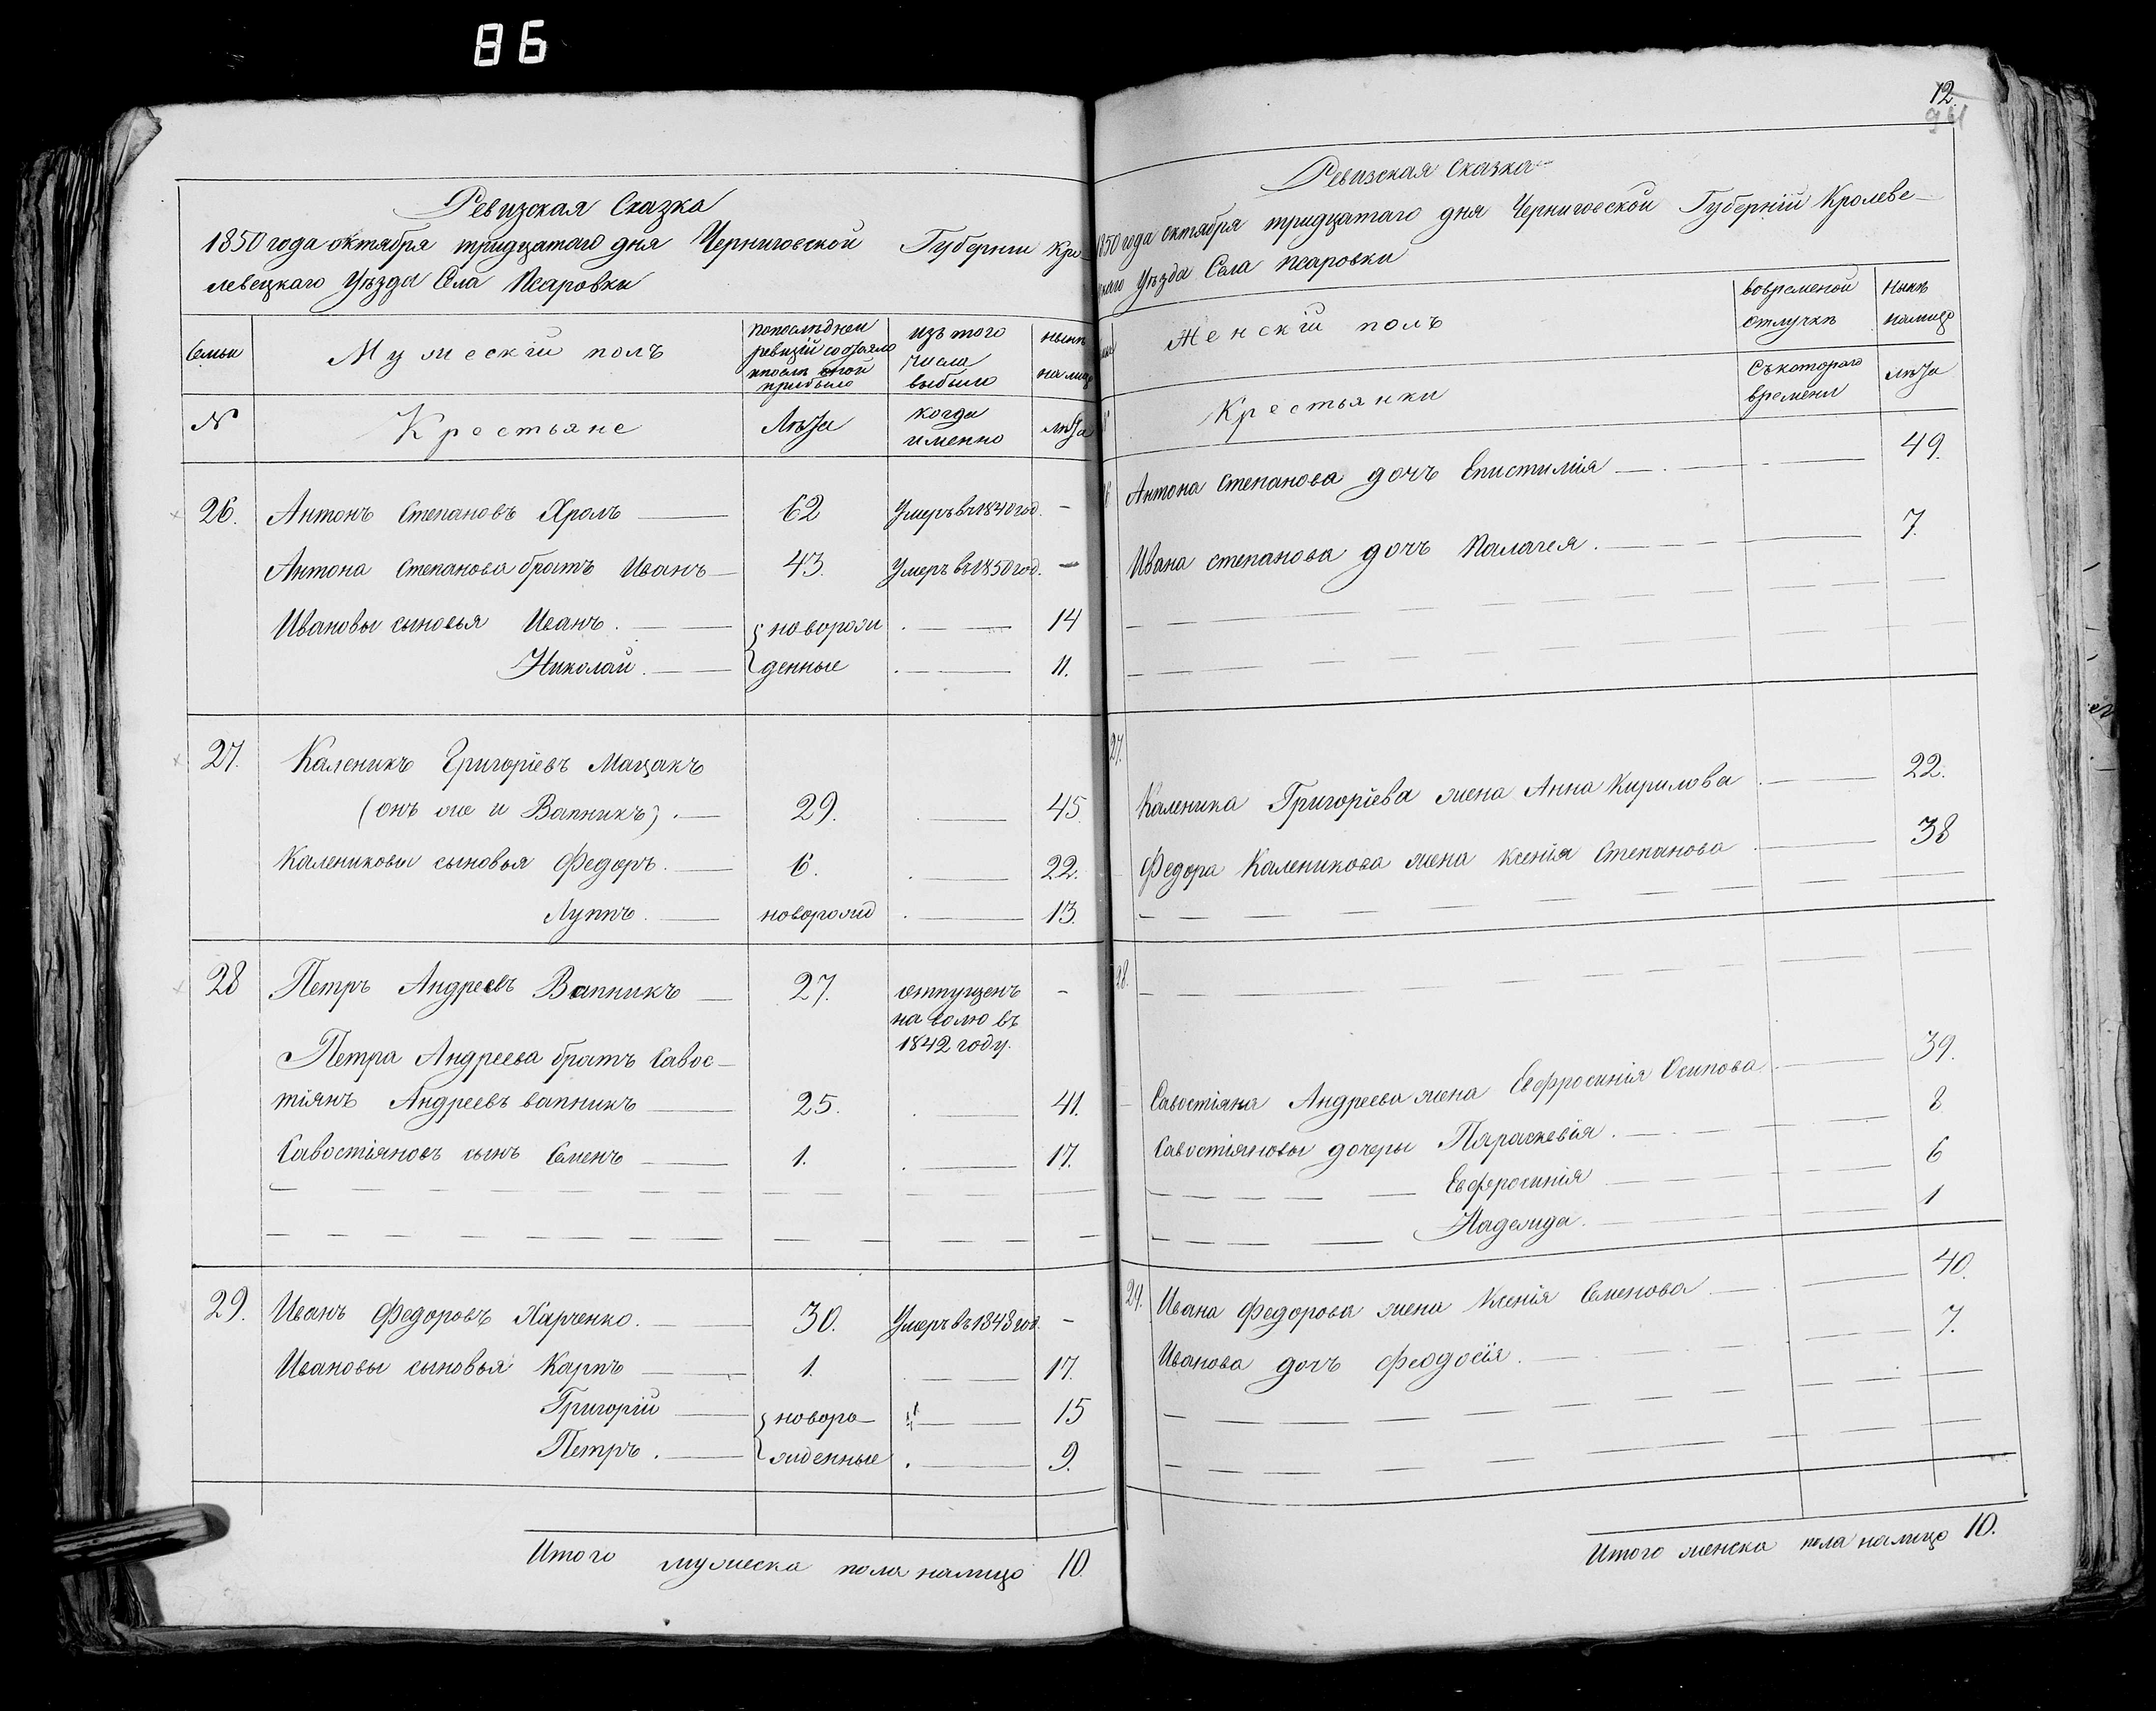 86
Ревизская Сказка
1850 года октября тридцатаго дня Черниговской Губернии Кро-
левецкаго Уѣзда Села Псаровки
Семьи
Мужескій полъ
попослѣдней
ревизіи состояло
ипослѣ оной
прибыло
изъ того
числа
выбыло
нынѣ
на лицо
№
Крестьяне
Лѣта
когда
именно
лѣта
26. Антонъ Степановъ Хромъ 62 Умеръ въ 1840 год. -
Антона Степанова братъ Иванъ 43. Умеръ въ 1850 год. -
Ивановы сыновья Иванъ. новорож 14
Николай. денные 11.
27. Каленикъ Григоріевъ Мацакъ
(онъ же и Вапникъ). 29. 45
Калениковы сыновья Федоръ. 6. 22.
Луппъ. новорожд 13.
28 Петръ Андреевъ Вапникъ 27. отпущенъ -
на волю въ
1842 году.
Петра Андреева братъ Савос-
тіянъ Андреевъ вапникъ 25. 41.
Савостіяновъ сынъ Семенъ 1. 17.
29. Иванъ Федоровъ Харченко. 30. Умеръ въ 1848 год. -
Ивановы сыновья Карпъ 1. 17.
Григорій новоро- 15
Петръ. жденные 9.
Итого мужеска пола налицо 10.
12.
94
Ревизская Сказка
1850 года октября тридцатаго дня Черниговской Губерніи Кролеве-
цкаго Уѣзда Села Псаровки
Женскій полъ
вовременой
отлучкѣ
нынѣ
налицо
Крестьянки
Съ котораго
времени
лѣта
Антона Степанова дочь Епистимія 49.
Ивана степанова дочь Палагея. 7.
27.
Каленика Григоріева жена Анна Кирилова 22.
Федора Каленикова жена Ксенія Степанова 38
28.
Савостіяна Андреева жена Евфросинія Осипова 39.
Савостіяновы дочери Параскевія. 8
Евфросинія 6
Надежда. 1
29. Ивана Федорова жена Ксенія Семенова 40.
Иванова дочь Феодосія. 7.
Итого женска пола налицо 10.